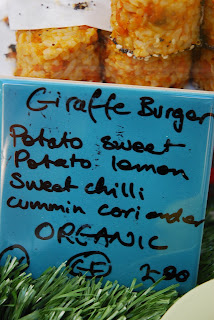 Giraffe Burger
Potato sweet
Potato lemon
Sweet chilli
cummin coriander
ORGANIC
V GF 2-80